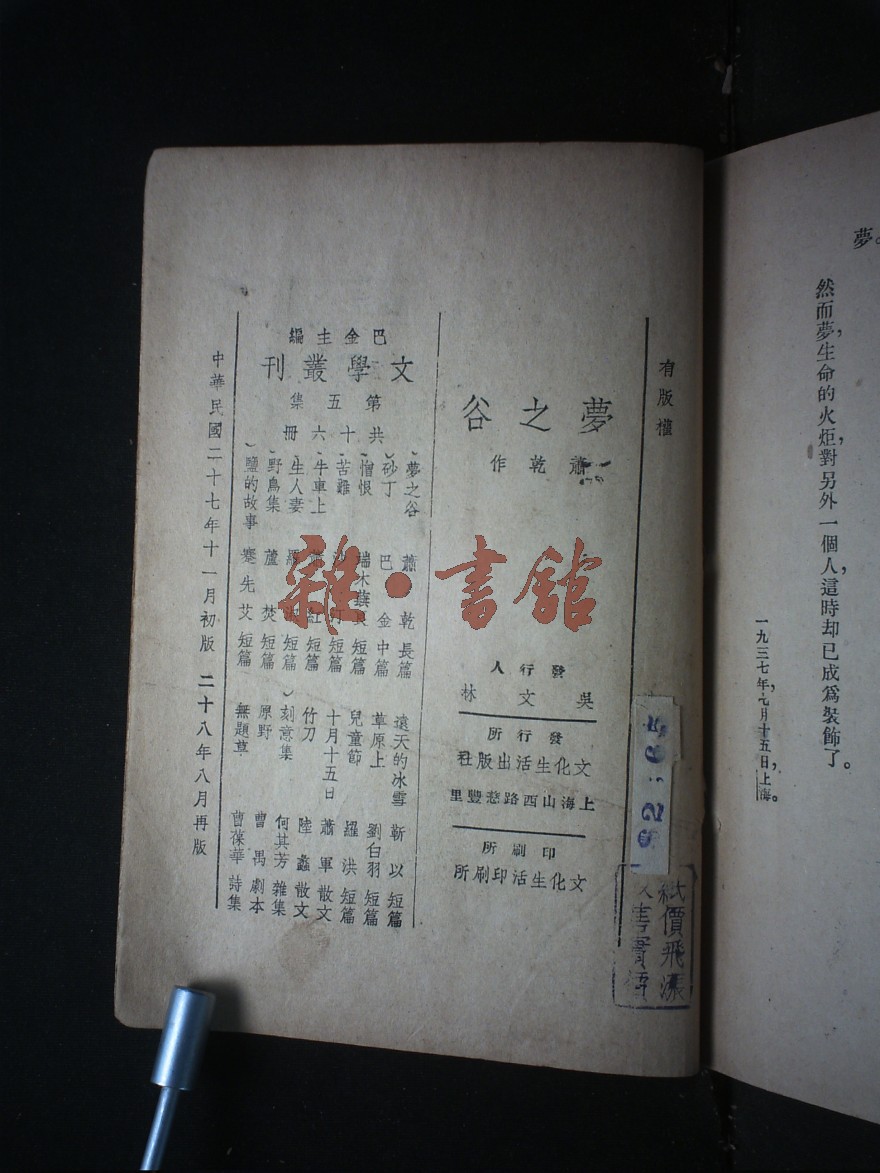 夢。
然而夢，生命的火炬，對另外一個人，這時却已成爲裝飾了。
一九三七年，元月十五日，上海。
有版權
夢之谷
蕭乾作
發行人
吳文林
發行所
文化生活出版社
上海山西路慈豐里
印刷所
文化生活印刷所
巴金主編
文學叢刊
第五集
共十六冊
夢之谷 蕭乾 長篇
砂丁 巴金 中篇
憎恨 端木蕻良 短篇
苦難 沙汀 短篇
牛車上 蕭紅 短篇
生人妻 羅淑 短篇
野鳥集 蘆焚 短篇
鹽的故事 蹇先艾 短篇
遠天的冰雪 靳以 短篇
草原上 劉白羽 短篇
兒童節 羅洪 短篇
十月十五日 蕭軍 散文
竹刀 陸蠡 散文
刻意集 何其芳 雜集
原野 曹禺 劇本
無題草 曹葆華 詩集
中華民國二十七年十一月初版 二十八年八月再版
紙價飛漲
雜·書館